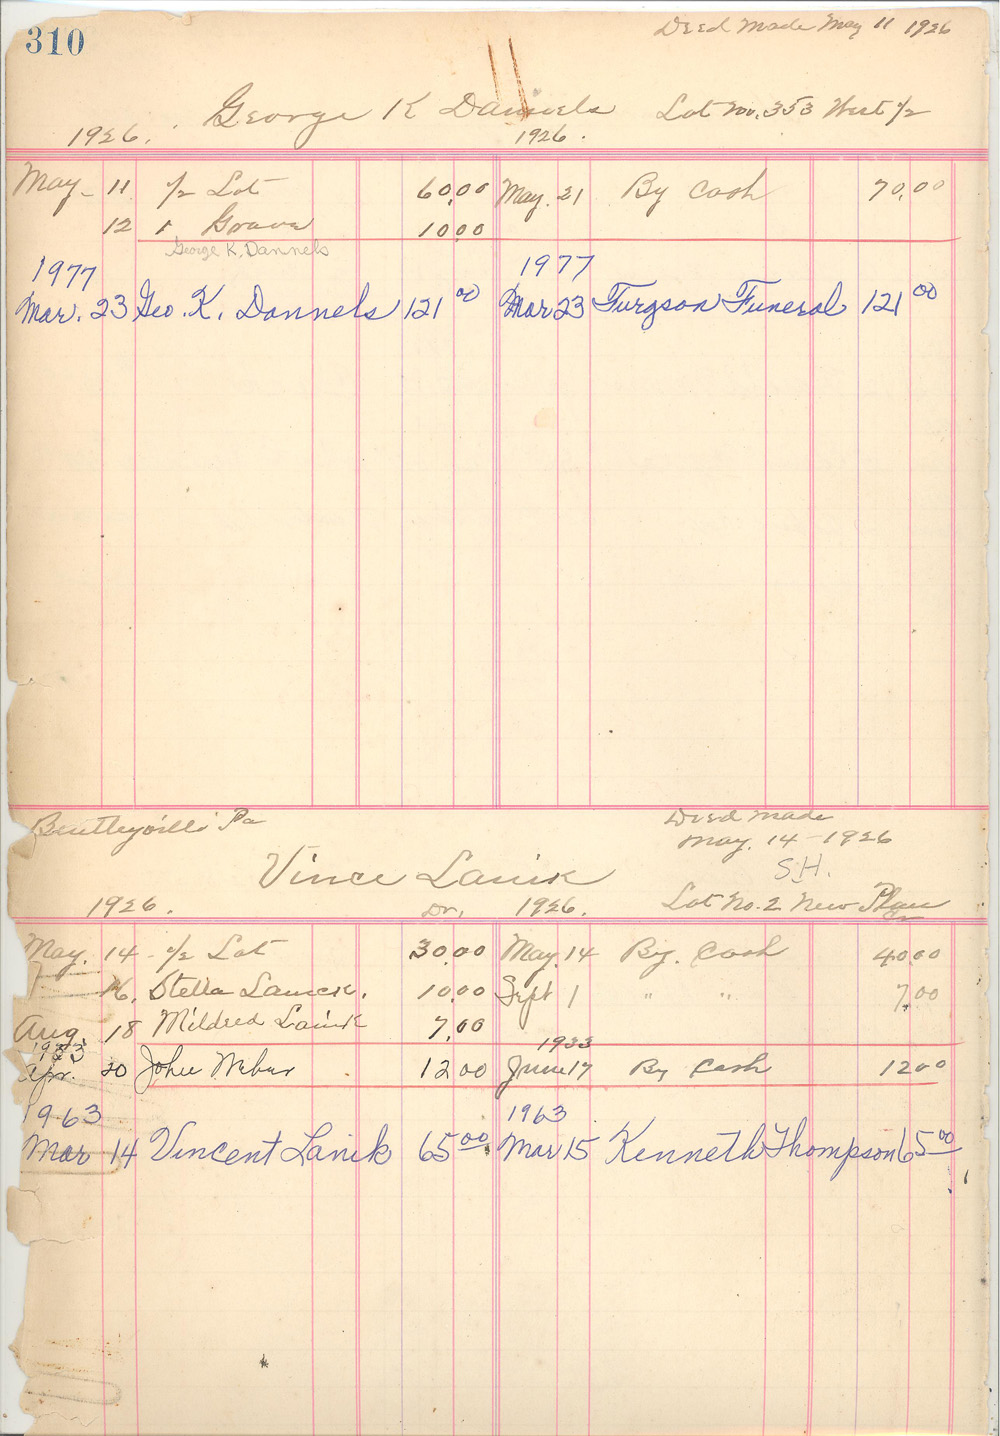 310
Deed Made May 11 1926
George K Dannels Lot No. 353 West 1/2
1926. 1926.
May 11 1/2 Lot 60.00 May. 21 By Cash 70.00
12 1 Grave 10.00
George K. Dannels
1977 1977
Mar. 23 Geo. K. Dannels 121 00 Mar 23 Furgson Funeral 121 00
Bentleyville Pa Deed Made
May. 14-1926
Vince Lanik S.H.
1926. Dr. 1926. Lot No. 2 New Plan
May. 14 - 1/2 Lot 30.00 May. 14 By. Cash 40.00
16. Stella Lanick. 10.00 Sept 1 " " 7.00
Aug. 18 Mildred Lanik 7.00
1933 1933
Apr. 20 John Weber 12 00 June 17 By Cash 12 00
1963 1963
Mar 14 Vincent Lanik 65 00 Mar 15 Kenneth Thompson 65 00